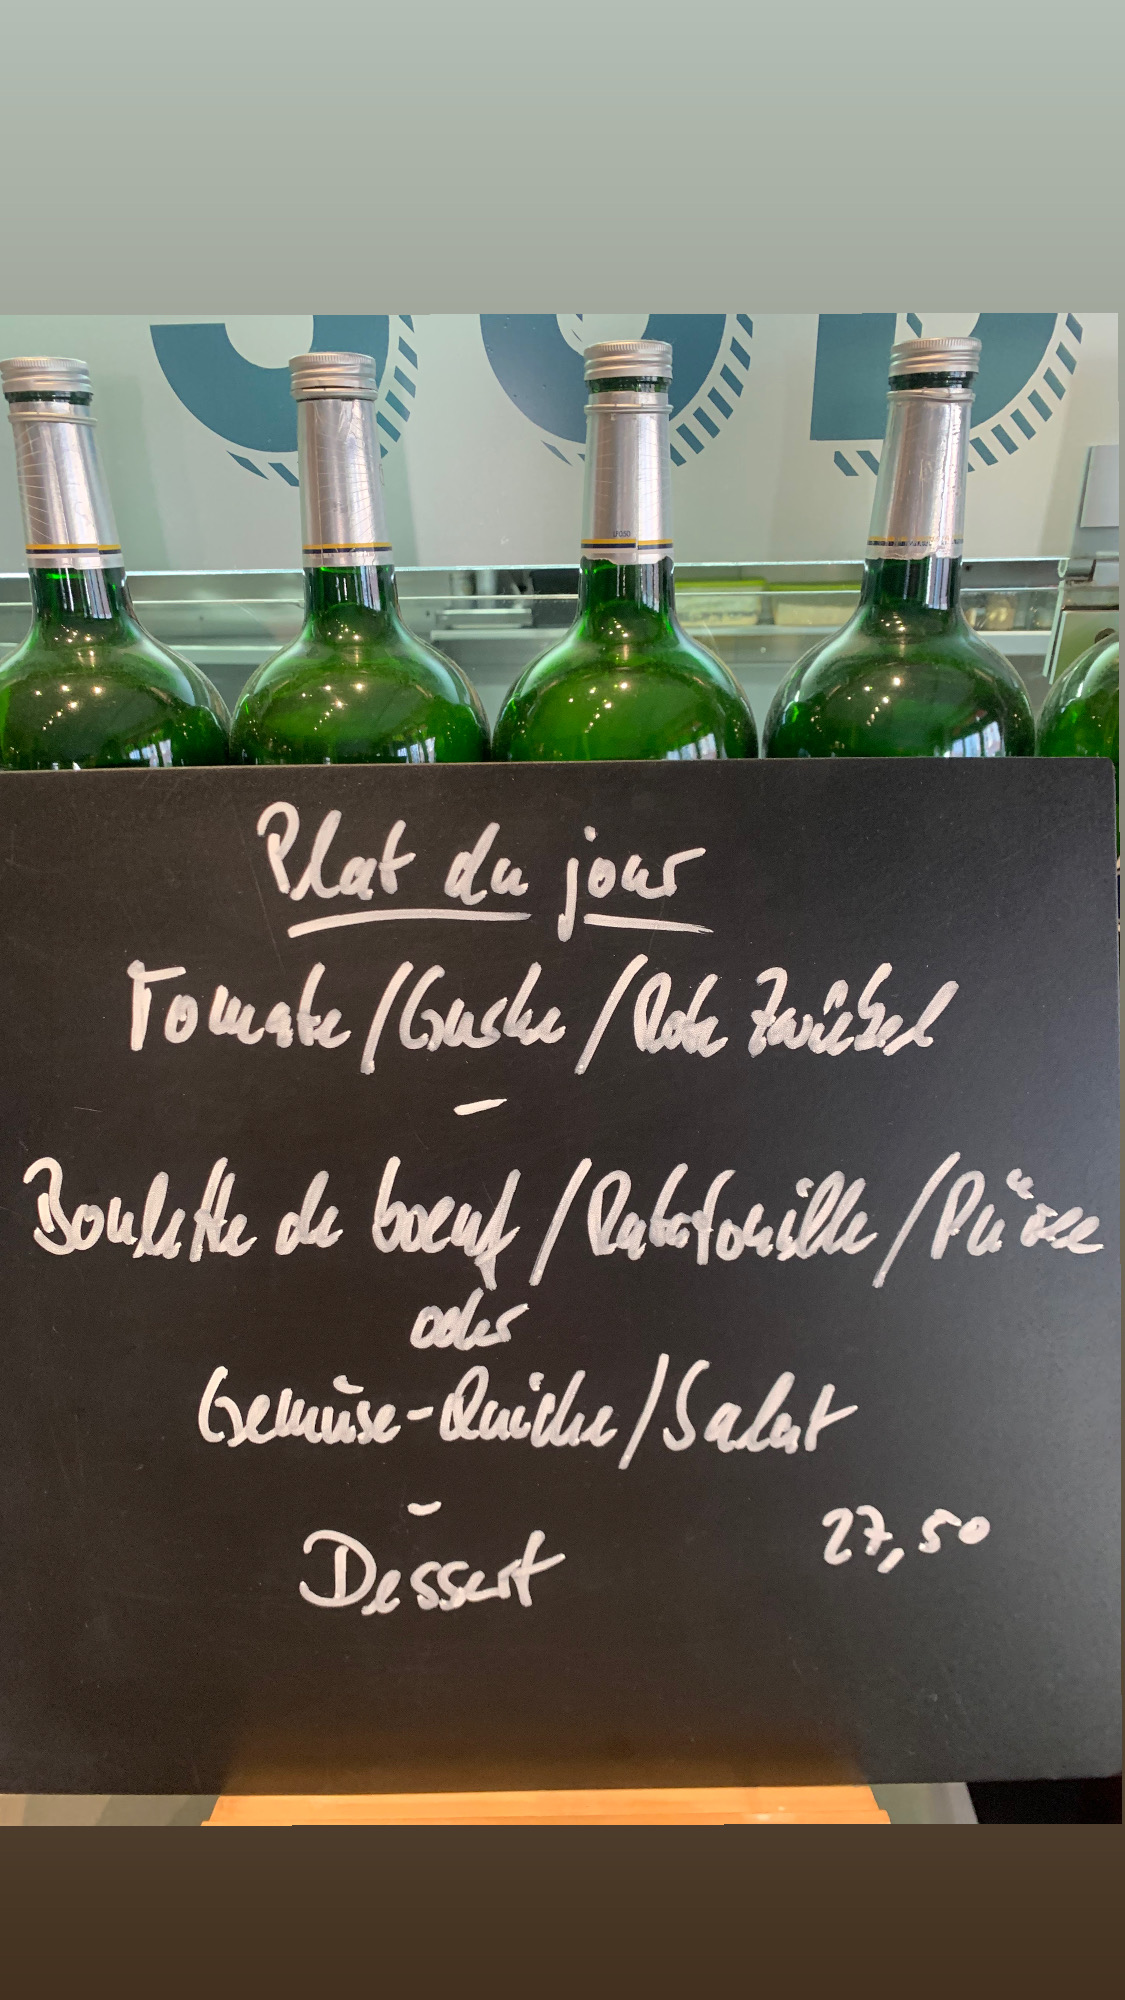 Plat du jour
Tomate / Gurke / Rote Zwiebel
-
Boulette de boeuf / Ratatouille / Püree
oder
Gemüse-Quiche / Salat
-
Dessert 27,50